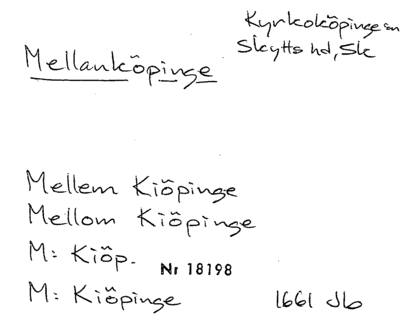 Kyrkoköpinge sn
Skytts hd, Sk
Mellanköpinge
Mellem Kiöpinge
Mellom Kiöpinge
M: Kiöp.
Nr 18198
M: Kiöpinge 1661 Jb